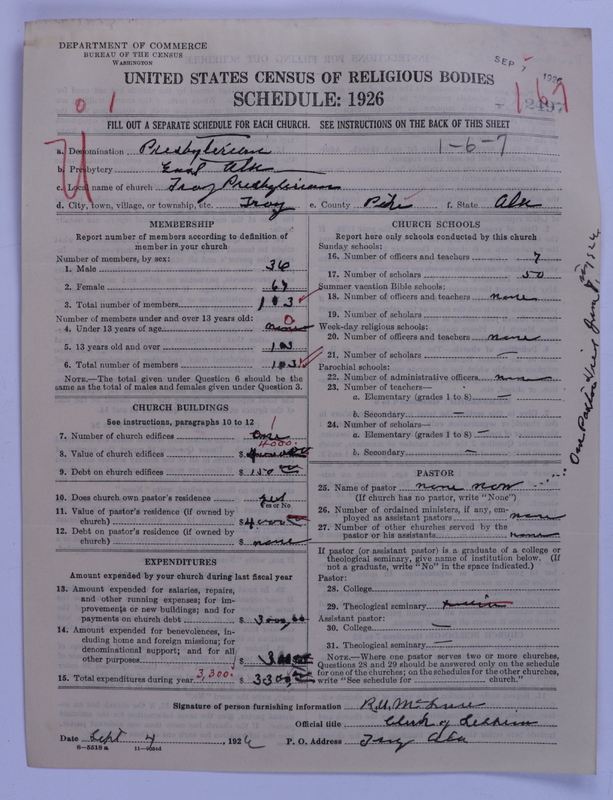 DEPARTMENT OF COMMERCE
BUREAU OF THE CENSUS
WASHINGTON
SEP 7 1926
UNITED STATES CENSUS OF RELIGIOUS BODIES
SCHEDULE: 1926
0 1
167
2497
FILL OUT A SEPARATE SCHEDULE FOR EACH CHURCH. SEE INSTRUCTIONS ON THE BACK OF THIS SHEET
a. Denomination Presbyterian 1-6-7
b. Presbytery East Ala
c. Local name of church Troy Presbyterian
d. City, town, village, or township, etc. Troy e. County Pike f. State Ala
MEMBERSHIP
Report number of members according to definition of member in your church
Number of members, by sex:
1. Male 36
2. Female 67
3. Total number of members 103
Number of members under and over 13 years old:
4. Under 13 years of age none 0
5. 13 years old and over 103
6. Total number of members 103
NOTE.—The total given under Question 6 should be the same as the total of males and females given under Question 3.
CHURCH BUILDINGS
See instructions, paragraphs 10 to 12
7. Number of church edifices one 1
8. Value of church edifices $ 4000.
9. Debt on church edifices $ 150 00
10. Does church own pastor's residence yes
Yes or No
11. Value of pastor's residence (if owned by church) $ 4000
12. Debt on pastor's residence (if owned by church) $ none
EXPENDITURES
Amount expended by your church during last fiscal year
13. Amount expended for salaries, repairs, and other running expenses; for improvements or new buildings; and for payments on church debt $ 3000.00
14. Amount expended for benevolences, including home and foreign missions; for denominational support; and for all other purposes $ 300.00
15. Total expenditures during year 3,300. $ 3300.00
CHURCH SCHOOLS
Report here only schools conducted by this church
Sunday schools:
16. Number of officers and teachers 7
17. Number of scholars 50
Summer vacation Bible schools:
18. Number of officers and teachers none
19. Number of scholars
Week-day religious schools:
20. Number of officers and teachers none
21. Number of scholars —
Parochial schools:
22. Number of administrative officers none
23. Number of teachers—
a. Elementary (grades 1 to 8) —
b. Secondary —
24. Number of scholars—
a. Elementary (grades 1 to 8) —
b. Secondary —
PASTOR
25. Name of pastor none now
(If church has no pastor, write "None")
26. Number of ordained ministers, if any, employed as assistant pastors none
27. Number of other churches served by the pastor or his assistants none
If pastor (or assistant pastor) is a graduate of a college or theological seminary, give name of institution below. (If not a graduate, write "No" in the space indicated.)
Pastor:
28. College
29. Theological seminary
Assistant pastor:
30. College —
31. Theological seminary —
NOTE.—Where one pastor serves two or more churches, Questions 28 and 29 should be answered only on the schedule for one of the churches; on the schedules for the other churches, write "See schedule for ______ church."
Our Pastor died June
Signature of person furnishing information
Official title Clerk of Session
Date Sept 4, 1926 P. O. Address Troy Ala
8-5518 a